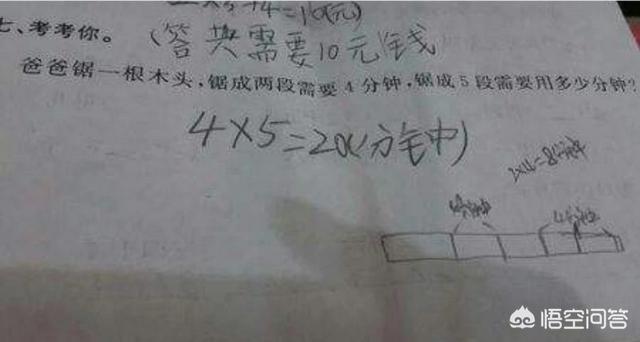 ×5+4=10(元)
七、考考你。
(答共需要10元钱
爸爸锯一根木头,锯成两段需要4分钟,锯成5段需要用多少分钟?
4×5=20(分钟)
2×4=8分钟
4分钟
悟空问答